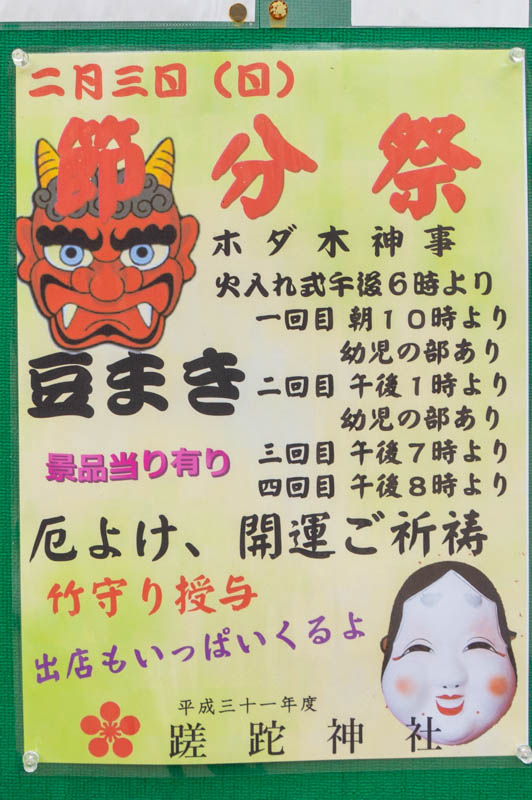 二月三日（日）
節分祭
ホダ木神事
火入れ式午後６時より
一回目 朝１０時より
幼児の部あり
豆まき
二回目 午後１時より
幼児の部あり
三回目 午後７時より
四回目 午後８時より
景品当り有り
厄よけ、開運ご祈祷
竹守り授与
出店もいっぱいくるよ
平成三十一年度
蹉跎神社